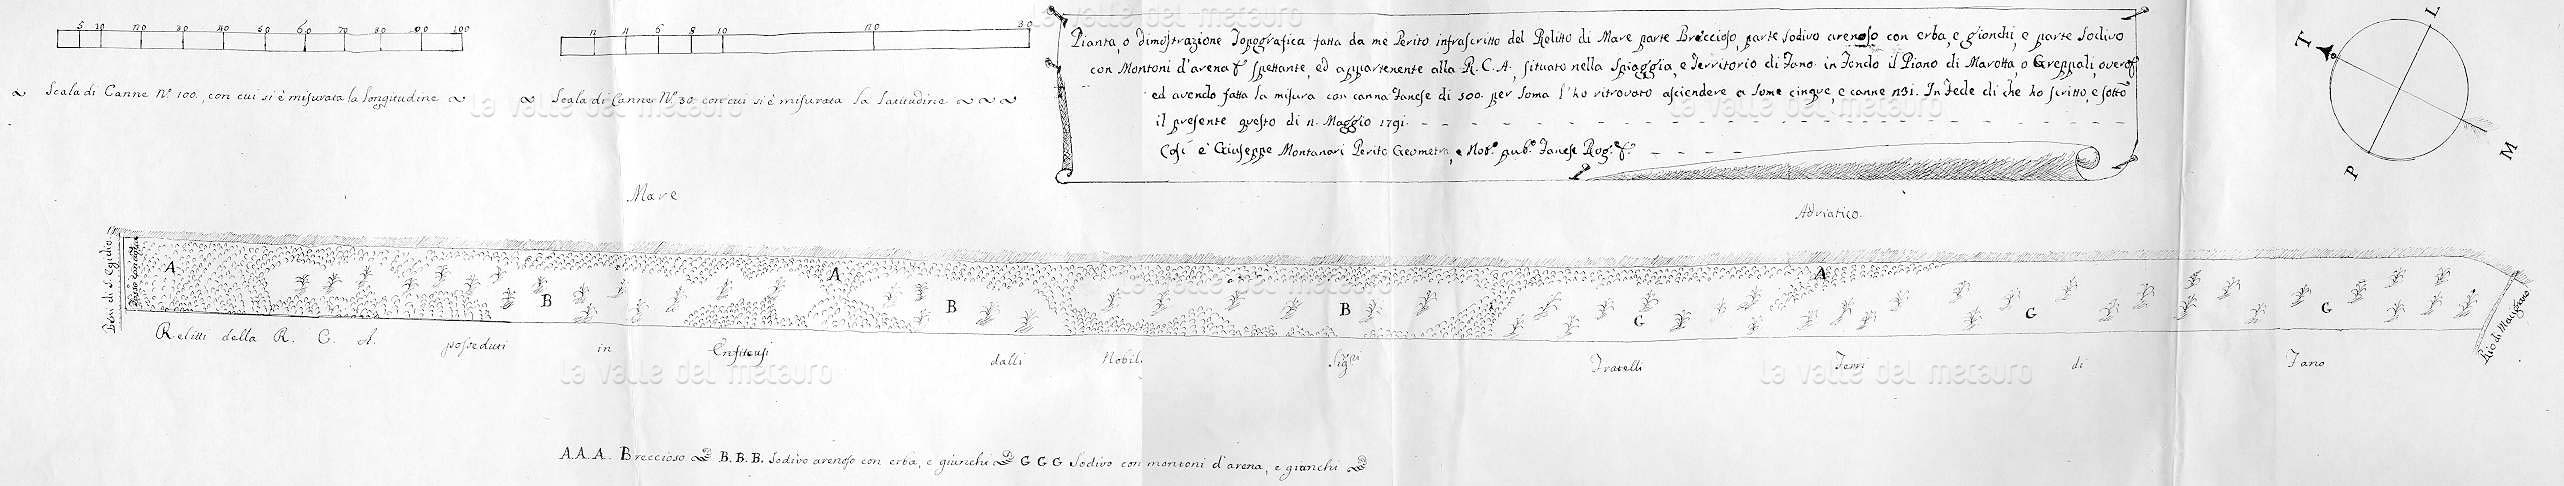 5 10 20 30 40 50 60 70 80 90 100
2 4 6 8 10 20 30
Scala di Canne N.º 100, con cui si è misurata la longitudine
Scala di Canne N.º 30. con cui si è misurata la latitudine
Pianta, o Dimostrazione Topografica fatta da me Perito infrascritto del Relitto di Mare parte Breccioso, parte sodivo arenoso con erba, e gionchi, e parte Sodivo
con Montoni d'arena spettante, ed appartenente alla R. C. A., situato nella Spiaggia, e Territorio di Fano in Fondo il Piano di Marotta, o Greppoli, overo
ed avendo fatta la misura con canna Fanese di 500. per soma l'ho ritrovato asciendere a some cinque, e canne 231. In Fede di che ho scritto, e sotto
il presente questo di 2. Maggio 1791.
Così è Giuseppe Montanari Perito Geometra, e Not.º pub.º Fanese Rog.
T L M P
Mare
Adriatico.
Beni di S. Egidio
A B A B B G A G G
Rio di Marignano
Relitti della R. C. A. posseduti in Enfiteusi dalli Nobili Sig.ri Fratelli Ferri di Fano
A.A.A. Breccioso B.B.B. Sodivo arenoso con erba, e giunchi G G G Sodivo con montoni d'arena, e giunchi
la valle del metauro
la valle del metauro
la valle del metauro
la valle del metauro
la valle del metauro
la valle del metauro